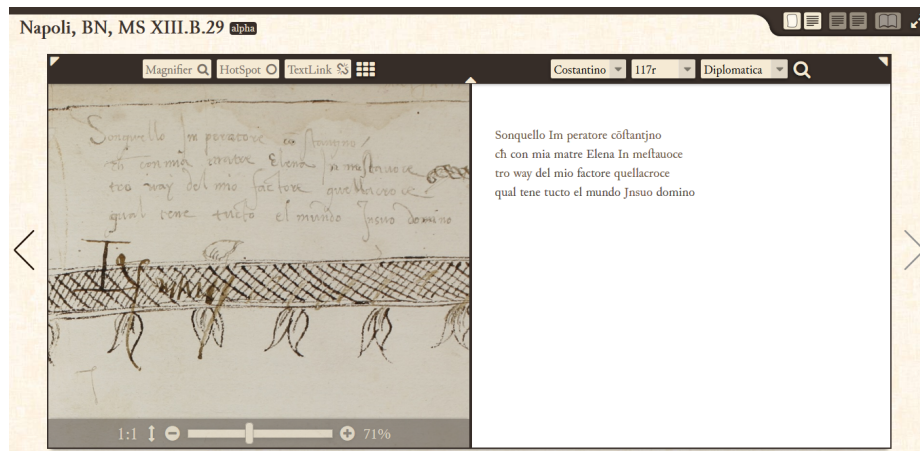 Napoli, BN, MS XIII.B.29 alpha
Magnifier HotSpot TextLink
Costantino 117r Diplomatica
Sonquello Im peratore cōſtantjno
cħ con mia matre Elena In meſtauoce
tro way del mio factore quellacroce
qual tene tucto el mundo Jnsuo domino
Sonquello Im peratore cōſtantjno
cħ con mia matre Elena In meſtauoce
tro way del mio factore quellacroce
qual tene tucto el mundo Jnsuo domino
T
1:1 71%